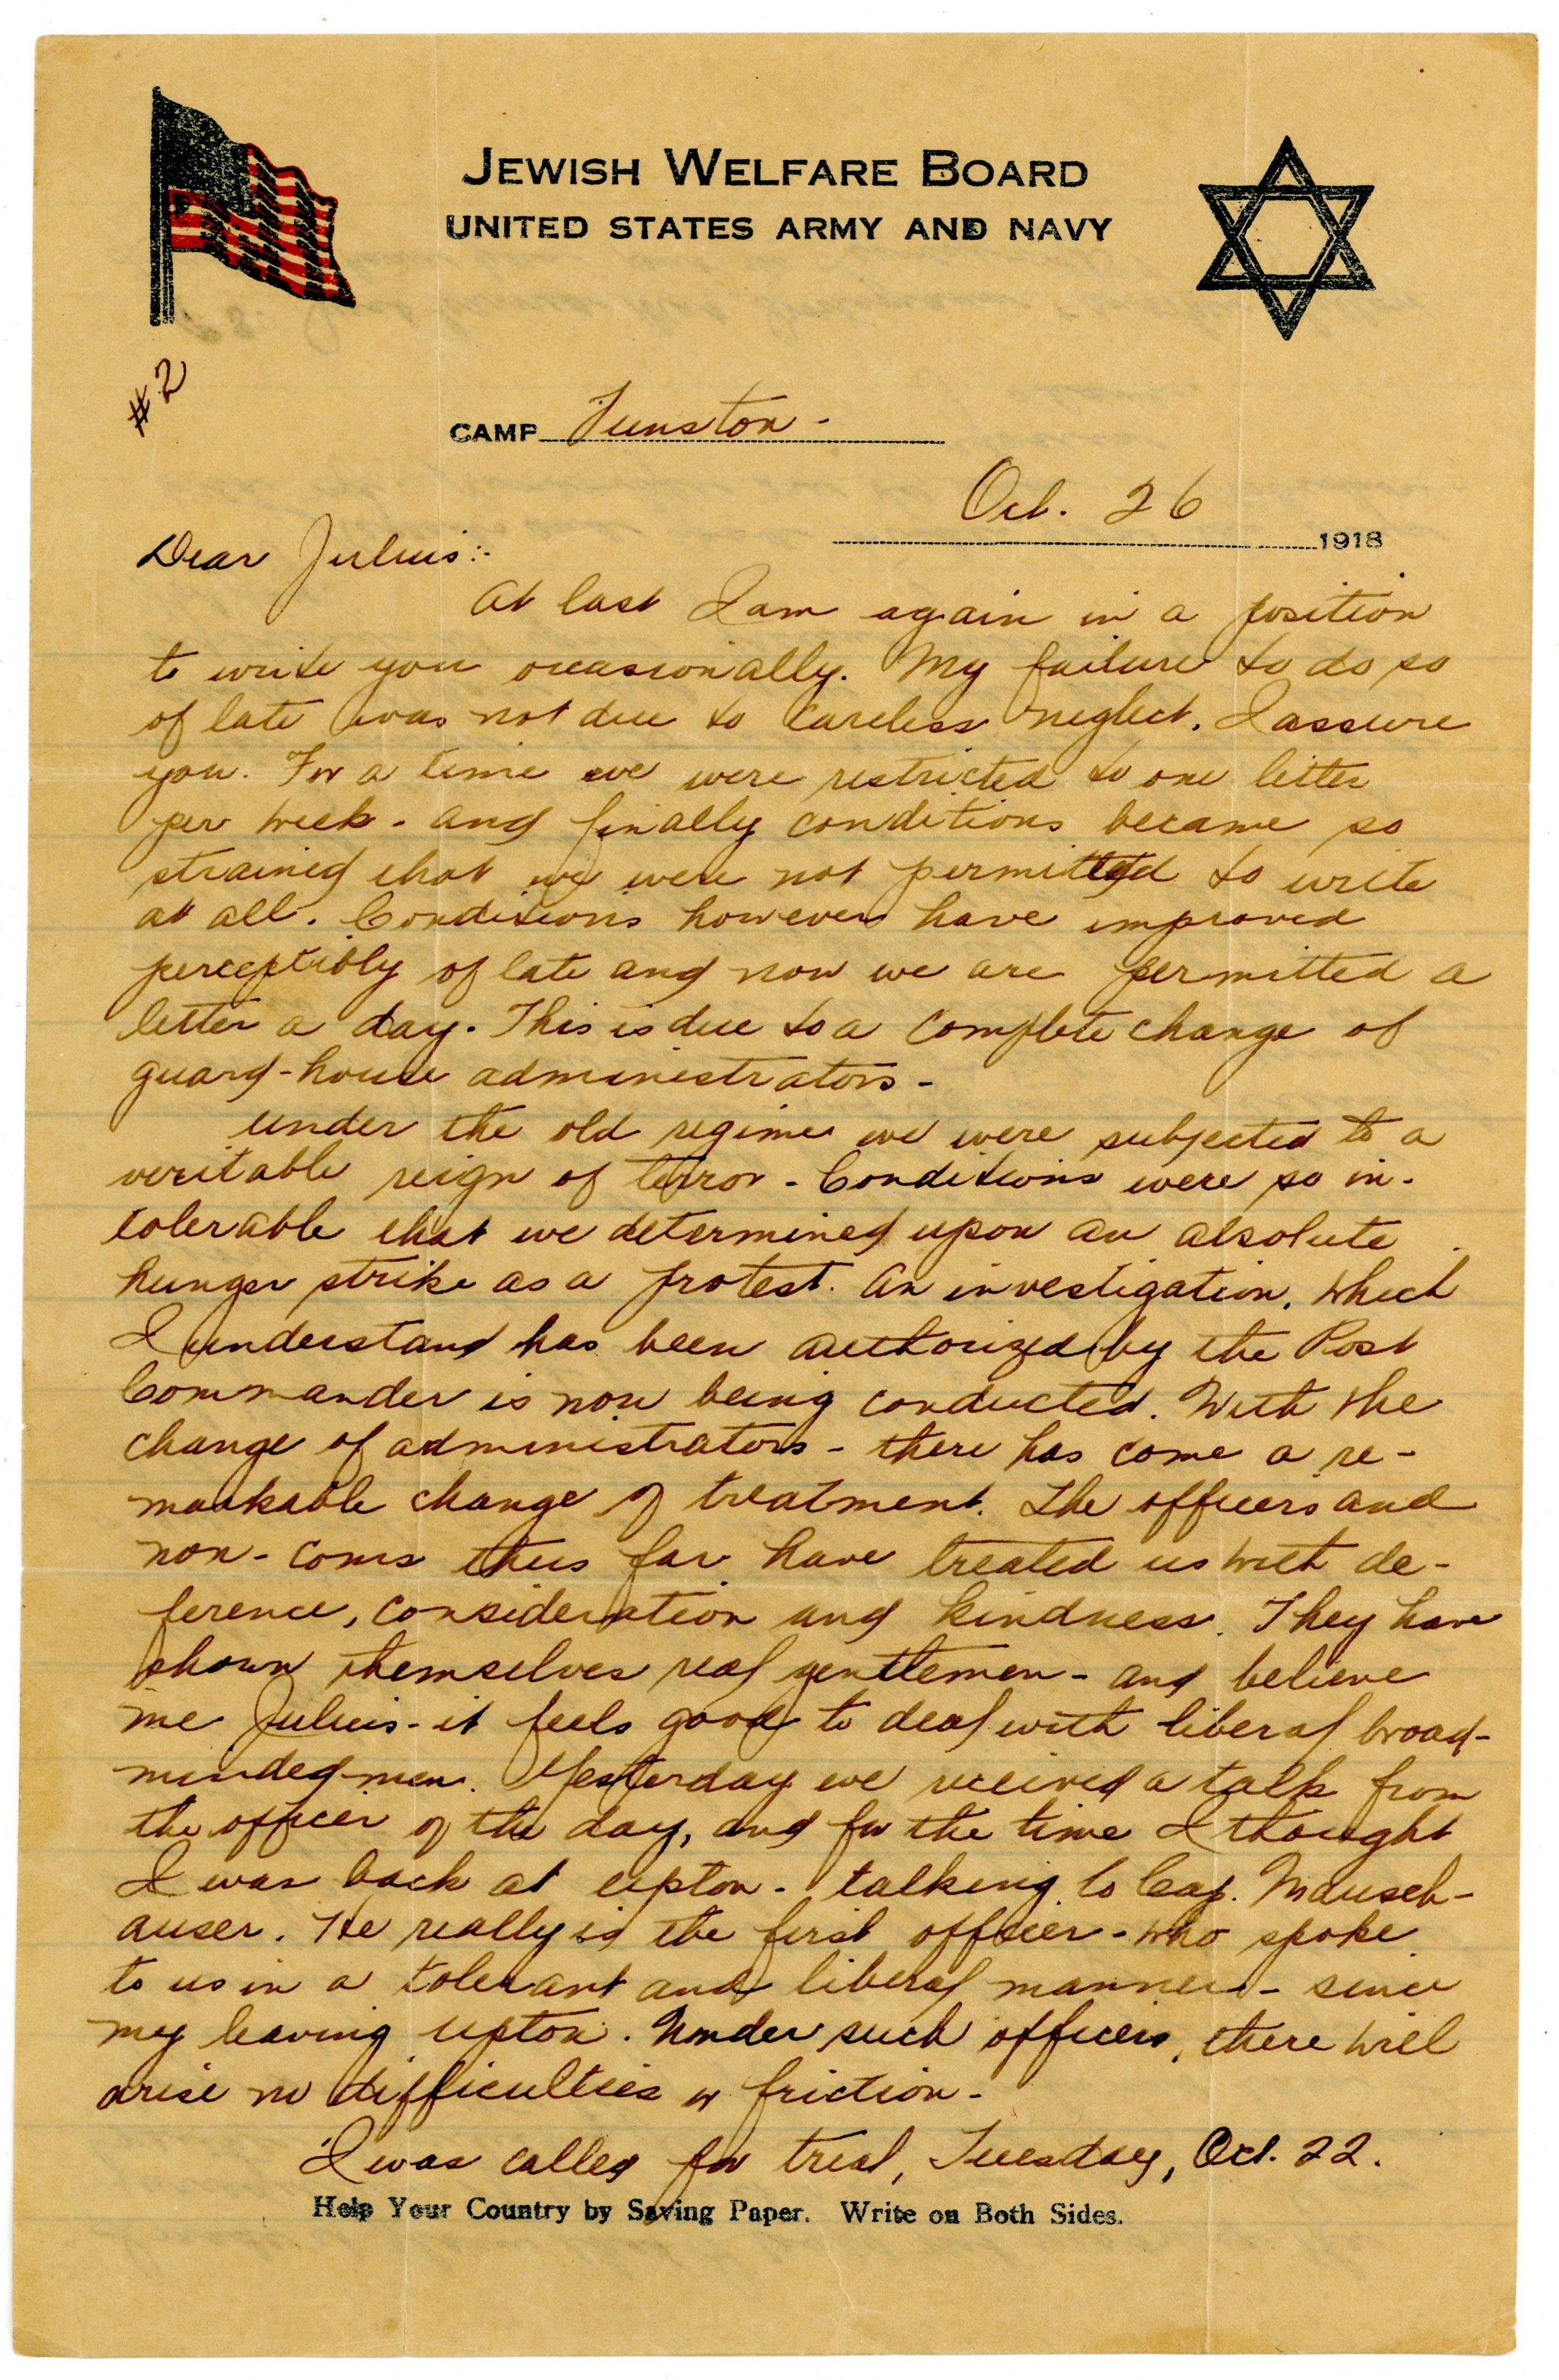 JEWISH WELFARE BOARD
UNITED STATES ARMY AND NAVY
#2
CAMP Funston -
Oct. 26 1918
Dear Julius:-
At last I am again in a position
to write you occasionally. My failure to do so
of late was not due to careless neglect, I assure
you. For a time we were restricted to one letter
per week - and finally conditions became so
strained that we were not permitted to write
at all. Conditions however have improved
perceptibly of late and now we are permitted a
letter a day. This is due to a complete change of
guard-house administrators -
Under the old regime we were subjected to a
veritable reign of terror - Conditions were so in-
tolerable that we determined upon an absolute
hunger strike as a protest. An investigation, which
I understand has been authorized by the Post
Commander is now being conducted. With the
change of administrators - there has come a re-
markable change of treatment. The officers and
non-coms thus far have treated us with de-
ference, consideration and kindness. They have
shown themselves real gentlemen - and believe
me Julius - it feels good to deal with liberal broad-
minded men. Yesterday we received a talk from
the officer of the day, and for the time I thought
I was back at Upton - talking to Cap. Mausch-
auser. He really is the first officer - who spoke
to us in a tolerant and liberal manner - since
my leaving Upton. Under such officers, there will
arise no difficulties or friction -
I was called for trial, Tuesday, Oct. 22.
Help Your Country by Saving Paper. Write on Both Sides.